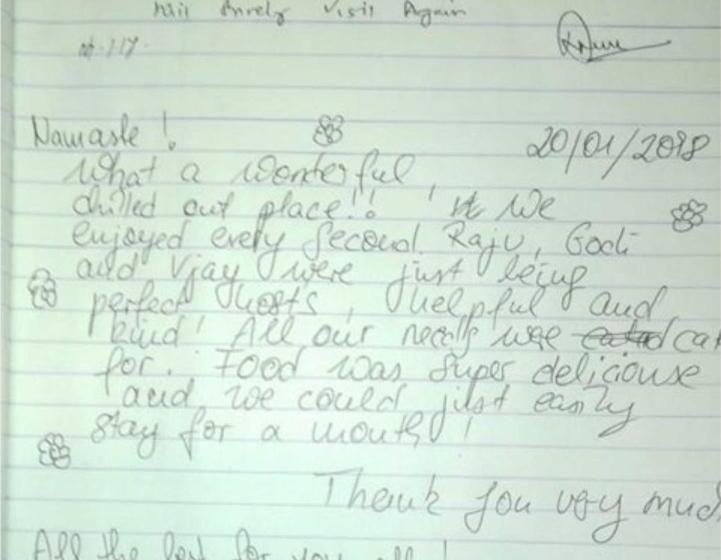 Will Surely Visit Again
Namaste !
20/01/2018
What a wonterful,
chilled out place!! We
enjoyed every second. Raju, Godi
and Vijay were just being
perfect hosts, helpful and
kind! All our needs were cat
for. Food was super deliciouse
and we could just easily
stay for a mouth!
Thank you very much
All the best for you all !